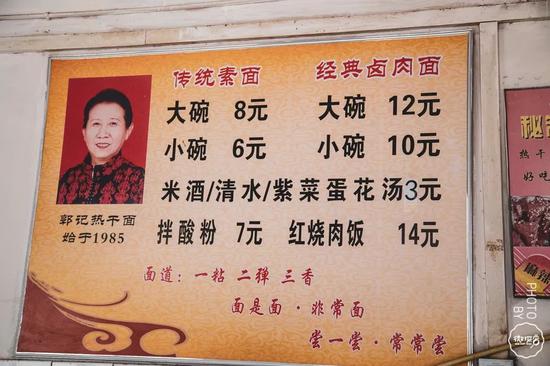 传统素面 经典卤肉面
大碗 8元 大碗 12元
小碗 6元 小碗 10元
米酒/清水/紫菜蛋花汤3元
拌酸粉 7元 红烧肉饭 14元
郭记热干面
始于1985
面道：一粘 二弹 三香
面是面·非常面
尝一尝·常常尝
热干
好吃
麻辣
PHOTO BY